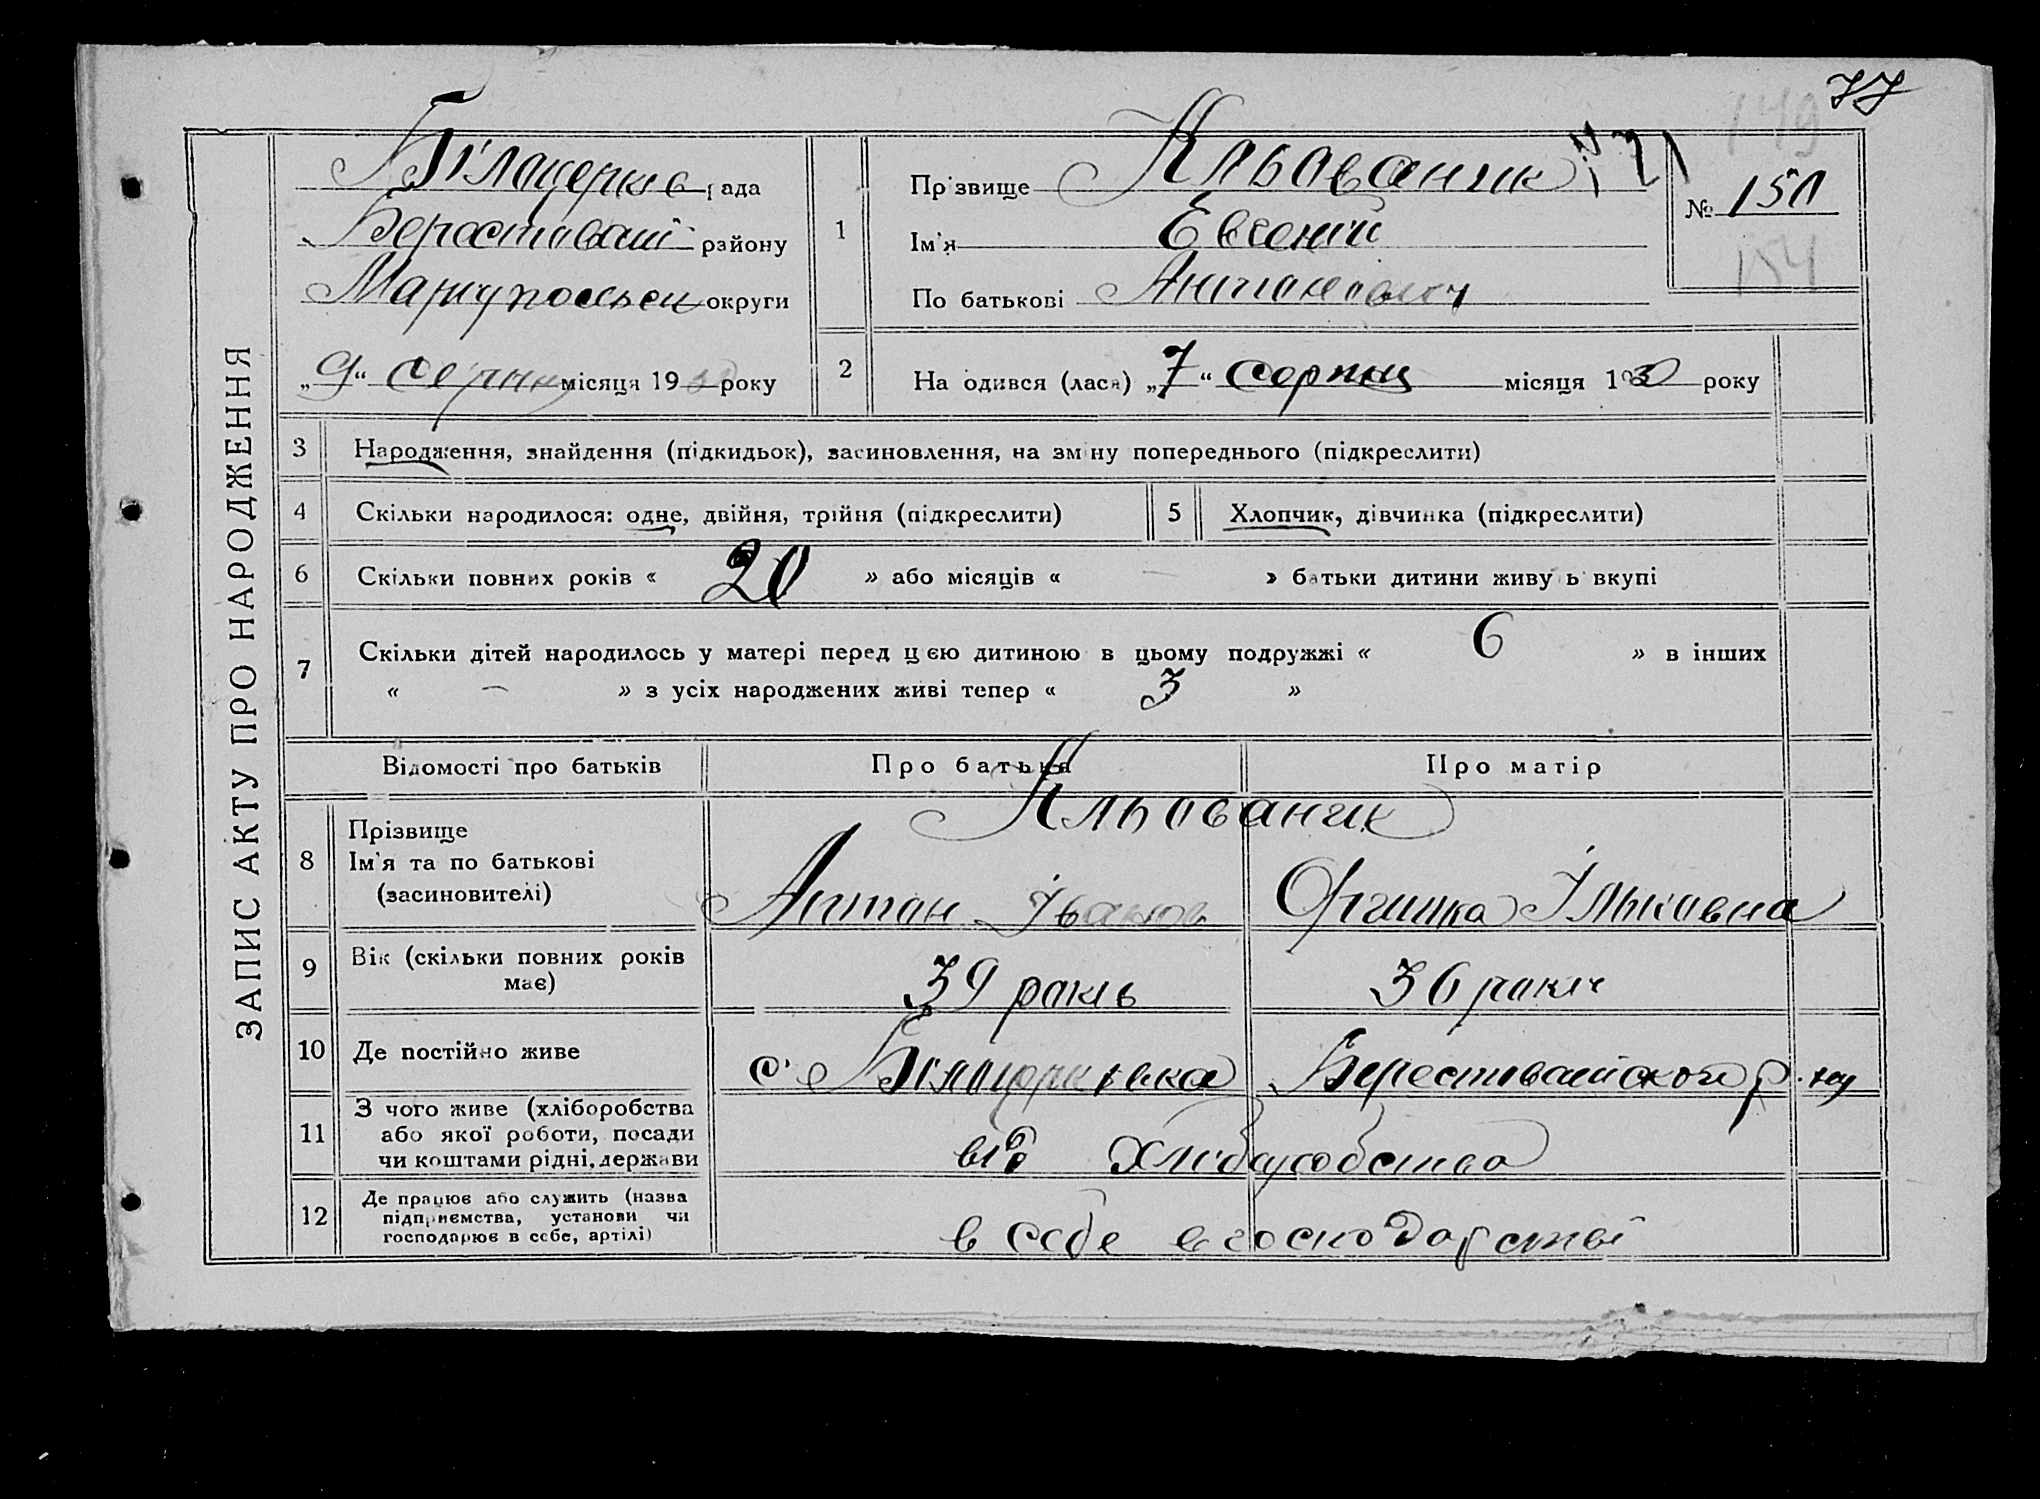 77
149
Білоцерків рада
Берестовий району
Маріупольськ округи
„9“ серпня місяця 1930 року
1 Прізвище Кльованик
Ім'я Евгений
По батькові Антонович
№ 151
154
2 Народився (лася) „7“ серпня місяця 1930 року
ЗАПИС АКТУ ПРО НАРОДЖЕННЯ
3 Народження, знайдення (підкидьок), засиновлення, на зміну попереднього (підкреслити)
4 Скільки народилося: одне, двійня, трійня (підкреслити) 5 Хлопчик, дівчинка (підкреслити)
6 Скільки повних років « 20 » або місяців « — » батьки дитини живуть вкупі
7 Скільки дітей народилось у матері перед цією дитиною в цьому подружжі « 6 » в інших
« — » з усіх народжених живі тепер « 3 »
Відомості про батьків Про батька Про матір
8 Прізвище
Ім'я та по батькові
(засиновителі)
Кльованик
Антон Іванов Оришка Ільковна
9 Вік (скільки повних років
має)
39 років 36 років
10 Де постійно живе с. Білоцерківка Берестовайского р-ну
11 З чого живе (хліборобства
або якої роботи, посади
чи коштами рідні, держави
від хліборобства
12 Де працює або служить (назва
підприємства, установи чи
господарює в себе, артілі)
в себе в господарстві